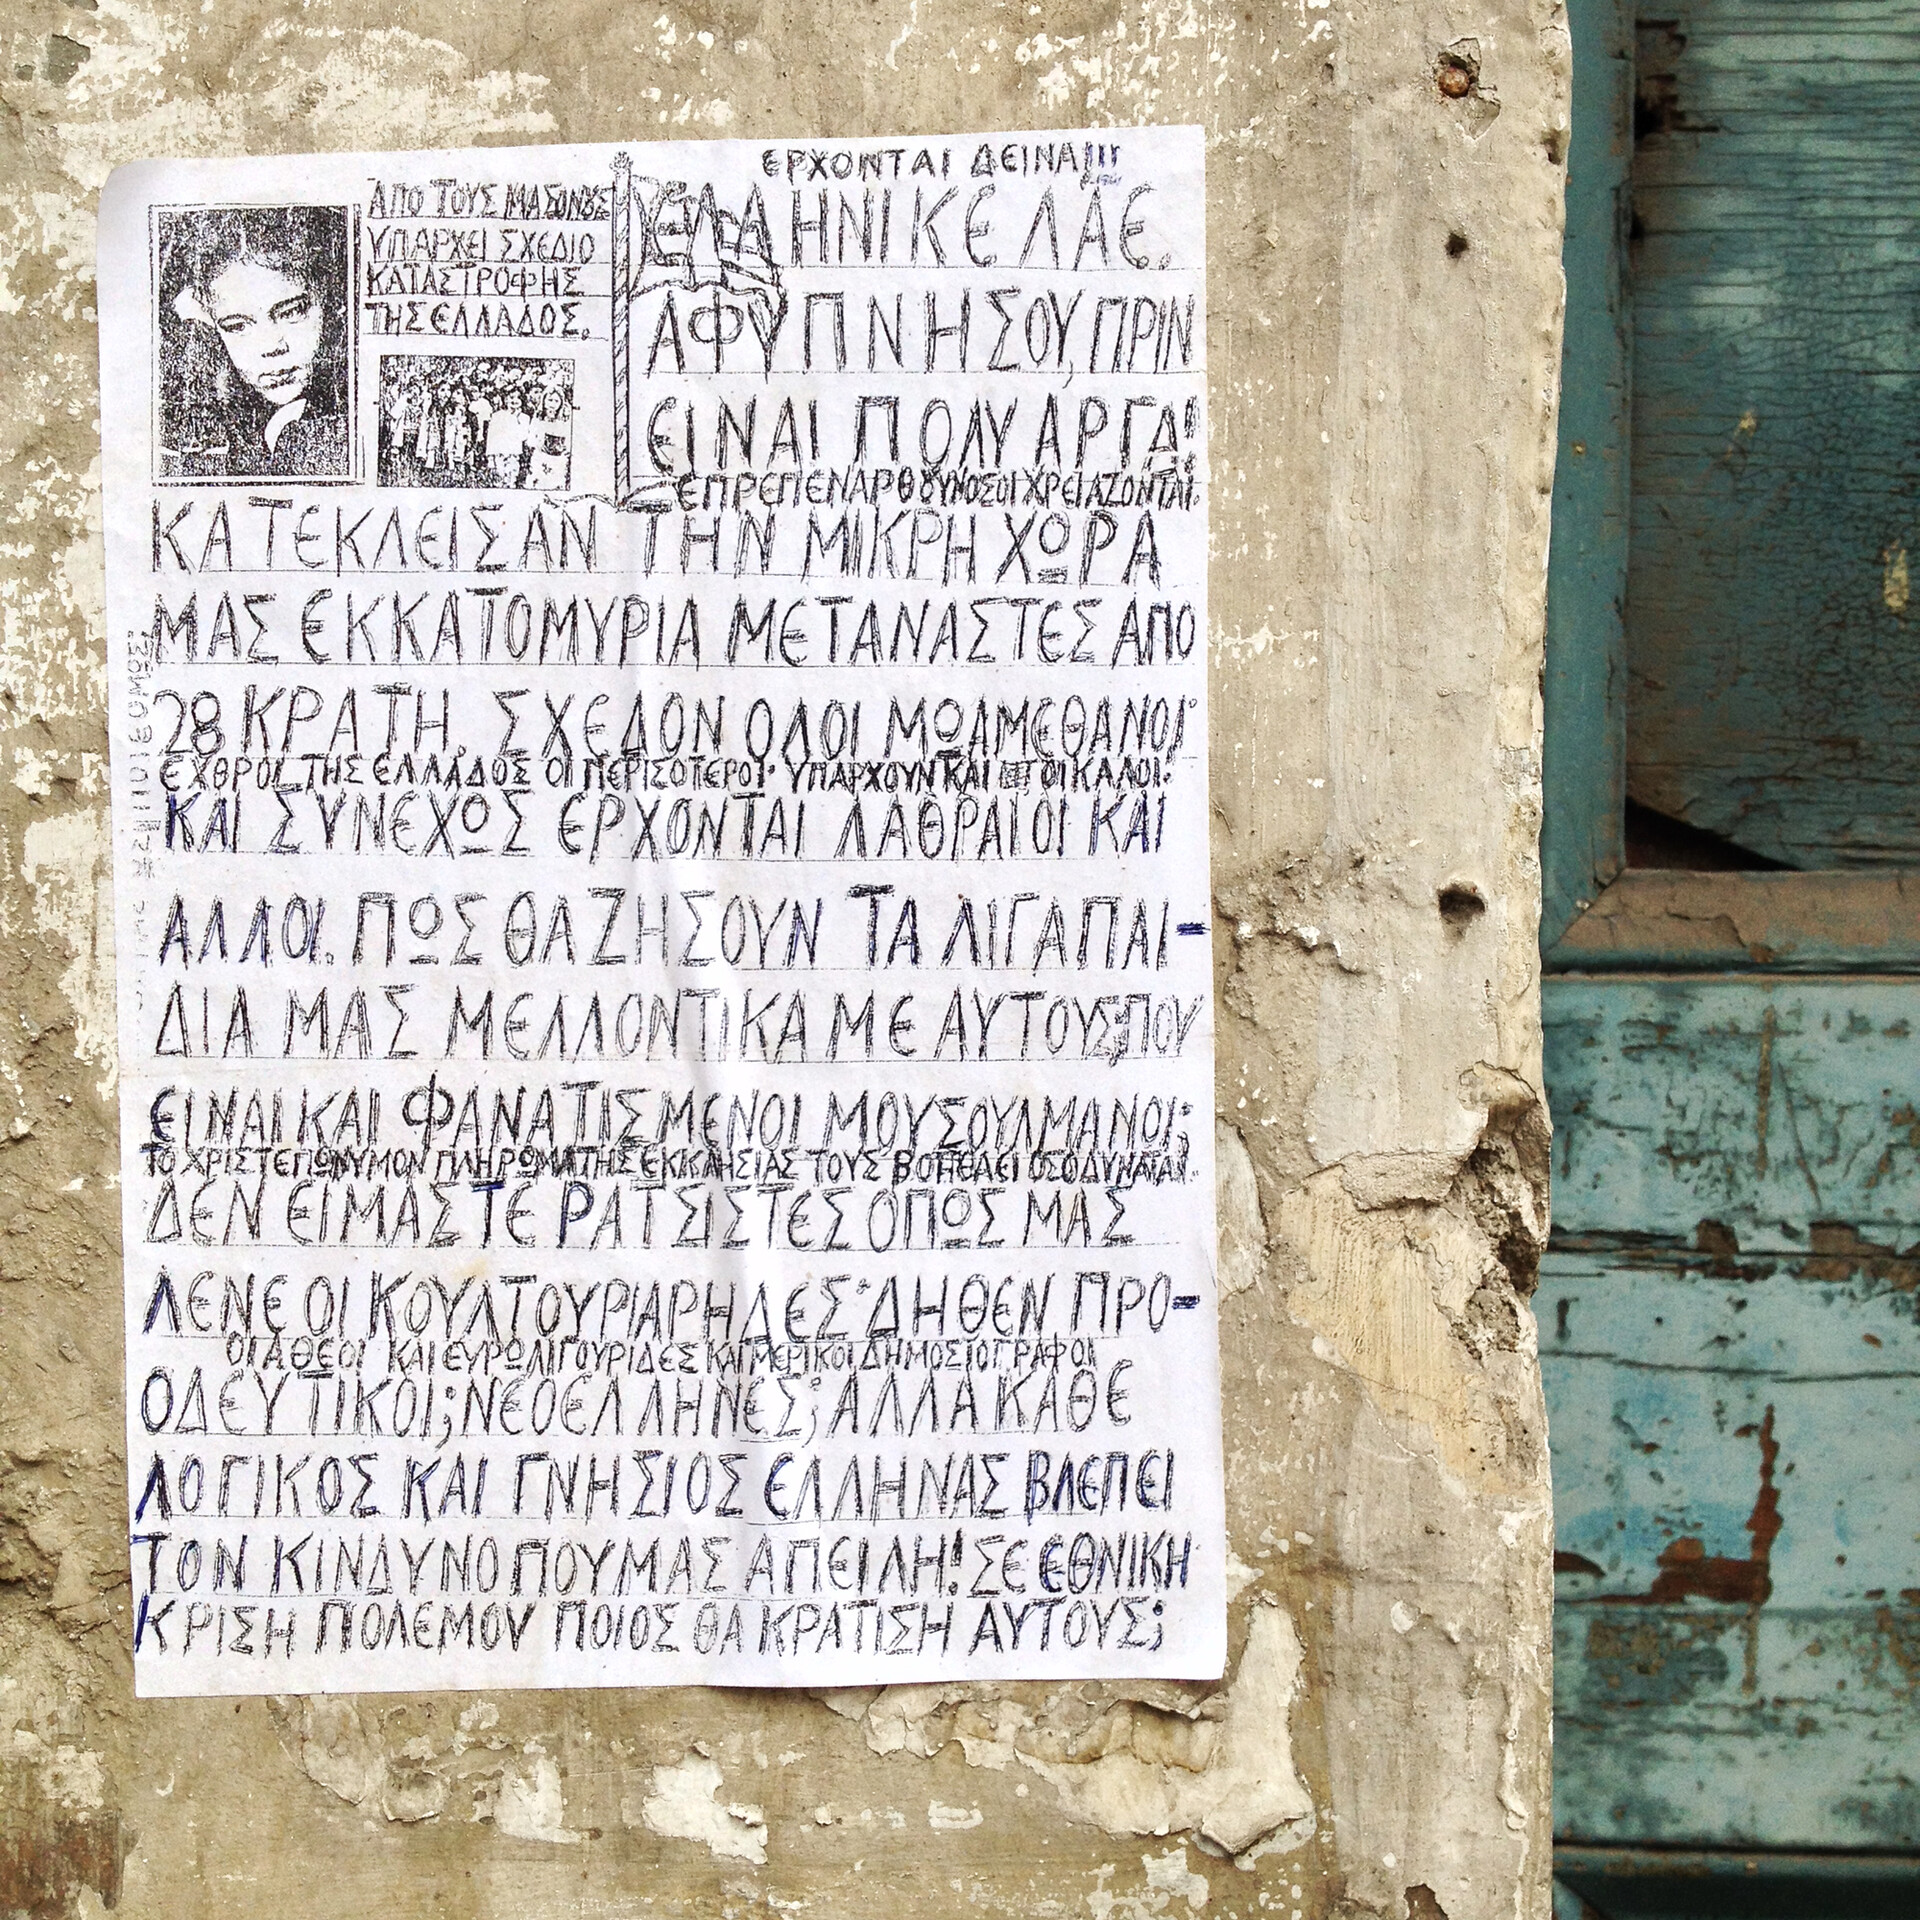 ΕΡΧΟΝΤΑΙ ΔΕΙΝΑ!!!
ΑΠΟ ΤΟΥΣ ΜΑΣΟΝΟΥΣ
ΥΠΑΡΧΕΙ ΣΧΕΔΙΟ
ΚΑΤΑΣΤΡΟΦΗΣ
ΤΗΣ ΕΛΛΑΔΟΣ.
ΕΛΛΗΝΙΚΕ ΛΑΕ.
ΑΦΥΠΝΗΣΟΥ, ΠΡΙΝ
ΕΙΝΑΙ ΠΟΛΥ ΑΡΓΑ!
ΕΠΡΕΠΕ ΝΑΡΘΟΥΝ ΟΣΟΙ ΧΡΕΙΑΖΟΝΤΑΙ.
ΚΑΤΕΚΛΕΙΣΑΝ ΤΗΝ ΜΙΚΡΗ ΧΩΡΑ
ΜΑΣ ΕΚΚΑΤΟΜΥΡΙΑ ΜΕΤΑΝΑΣΤΕΣ ΑΠΟ
28 ΚΡΑΤΗ. ΣΧΕΔΟΝ ΟΛΟΙ ΜΩΑΜΕΘΑΝΟΙ
ΕΧΘΡΟΙ ΤΗΣ ΕΛΛΑΔΟΣ ΟΙ ΠΕΡΙΣΟΤΕΡΟΙ· ΥΠΑΡΧΟΥΝ ΚΑΙ ΟΙ ΚΑΛΟΙ·
ΚΑΙ ΣΥΝΕΧΩΣ ΕΡΧΟΝΤΑΙ ΛΑΘΡΑΙΟΙ ΚΑΙ
ΑΛΛΟΙ. ΠΩΣ ΘΑ ΖΗΣΟΥΝ ΤΑ ΛΙΓΑ ΠΑΙ-
ΔΙΑ ΜΑΣ ΜΕΛΛΟΝΤΙΚΑ ΜΕ ΑΥΤΟΥΣ; ΠΟΥ
ΕΙΝΑΙ ΚΑΙ ΦΑΝΑΤΙΣΜΕΝΟΙ ΜΟΥΣΟΥΛΜΑΝΟΙ;
ΤΟ ΧΡΙΣΤΕΠΩΝΥΜΟΝ ΠΛΗΡΩΜΑ ΤΗΣ ΕΚΚΛΗΣΙΑΣ ΤΟΥΣ ΒΟΗΘΑΕΙ ΟΣΟ ΔΥΝΑΤΑΙ.
ΔΕΝ ΕΙΜΑΣΤΕ ΡΑΤΣΙΣΤΕΣ ΟΠΩΣ ΜΑΣ
ΛΕΝΕ ΟΙ ΚΟΥΛΤΟΥΡΙΑΡΗΔΕΣ· ΔΗΘΕΝ ΠΡΟ-
ΟΙ ΑΘΕΟΙ ΚΑΙ ΕΥΡΩΛΙΓΟΥΡΙΔΕΣ ΚΑΙ ΜΕΡΙΚΟΙ ΔΗΜΟΣΙΟΓΡΑΦΟΙ
ΟΔΕΥΤΙΚΟΙ; ΝΕΟΕΛΛΗΝΕΣ; ΑΛΛΑ ΚΑΘΕ
ΛΟΓΙΚΟΣ ΚΑΙ ΓΝΗΣΙΟΣ ΕΛΛΗΝΑΣ ΒΛΕΠΕΙ
ΤΟΝ ΚΙΝΔΥΝΟ ΠΟΥ ΜΑΣ ΑΠΕΙΛΗ! ΣΕ ΕΘΝΙΚΗ
ΚΡΙΣΗ ΠΟΛΕΜΟΥ ΠΟΙΟΣ ΘΑ ΚΡΑΤΙΣΗ ΑΥΤΟΥΣ;